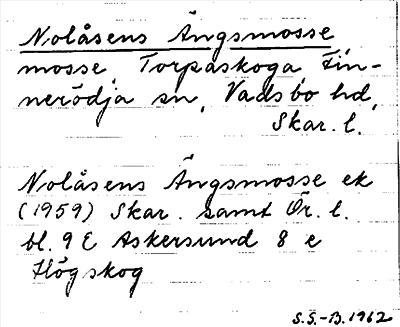 Nolåsens Ängsmosse
mosse Torpaskoga Fin-
nerödja sn, Vadsbo hd,
Skar. l.
Nolåsens Ängsmosse ek
(1959) Skar. samt Ör. l.
bl. 9 E Askersund 8 e
Högskog
S.S.-B. 1962